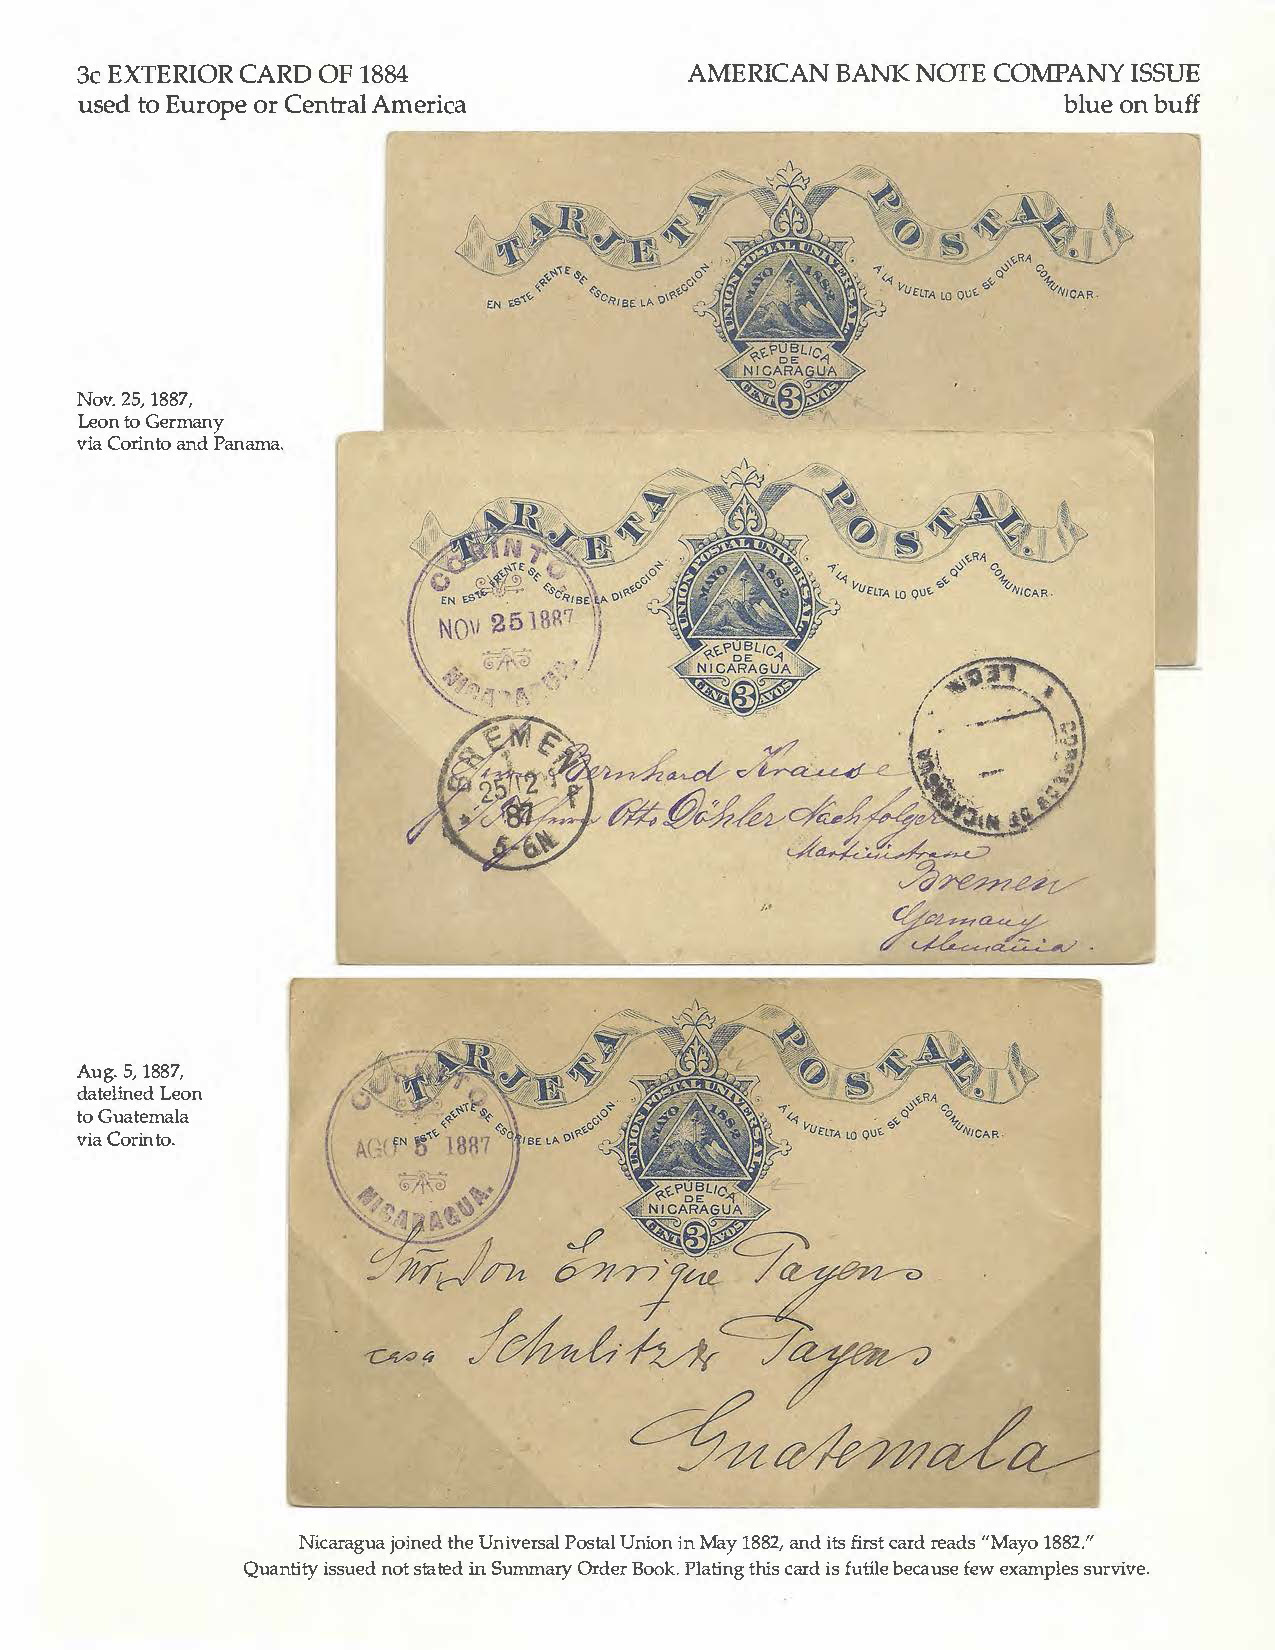 3c EXTERIOR CARD OF 1884
used to Europe or Central America
AMERICAN BANK NOTE COMPANY ISSUE
blue on buff
TARJETA POSTAL.
EN ESTE FRENTE SE ESCRIBE LA DIRECCION.
Á LA VUELTA LO QUE SE QUIERA COMUNICAR.
UNION POSTAL UNIVERSAL.
MAYO 1882
REPUBLICA
DE
NICARAGUA
CENT 3 AVOS
Nov. 25, 1887,
Leon to Germany
via Corinto and Panama.
TARJETA POSTAL.
EN ESTE FRENTE SE ESCRIBE LA DIRECCION.
Á LA VUELTA LO QUE SE QUIERA COMUNICAR.
UNION POSTAL UNIVERSAL.
MAYO 1882
REPUBLICA
DE
NICARAGUA
CENT 3 AVOS
CORINTO,
NOV 25 1887
NICARAGUA.
LEON
CORREOS DE NICARAGUA
BREMEN
25/12
87
5-6N
Bernhard Krause
Otto Döhler Nachfolger
Martinistrasse
Bremen
Germany
Alemania.
Aug. 5, 1887,
datelined Leon
to Guatemala
via Corinto.
TARJETA POSTAL.
EN ESTE FRENTE SE ESCRIBE LA DIRECCION.
Á LA VUELTA LO QUE SE QUIERA COMUNICAR.
UNION POSTAL UNIVERSAL.
MAYO 1882
REPUBLICA
DE
NICARAGUA
CENT 3 AVOS
CORINTO
AGO 5 1887
NICARAGUA.
Don Enrique Tayens
casa Schulitz & Tayens
Guatemala
Nicaragua joined the Universal Postal Union in May 1882, and its first card reads “Mayo 1882.”
Quantity issued not stated in Summary Order Book. Plating this card is futile because few examples survive.